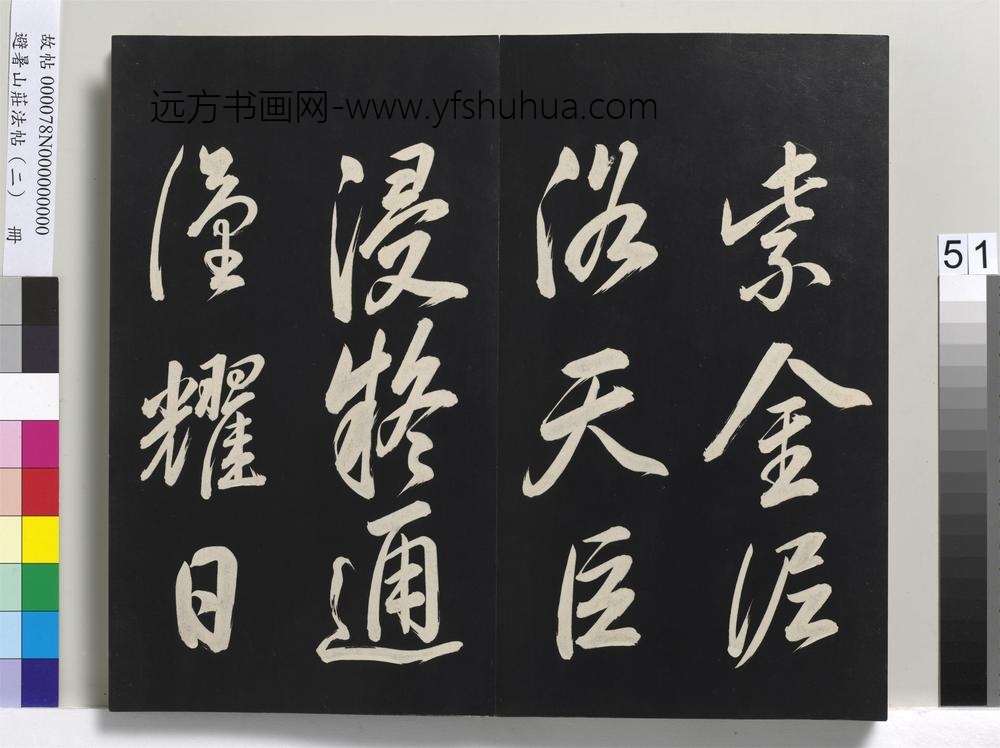 远方书画网-www.yfshuhua.com
紫金泥
浴天臣
浸通
耀日
故帖 000078N000000000
避暑山莊法帖（二） 冊
51